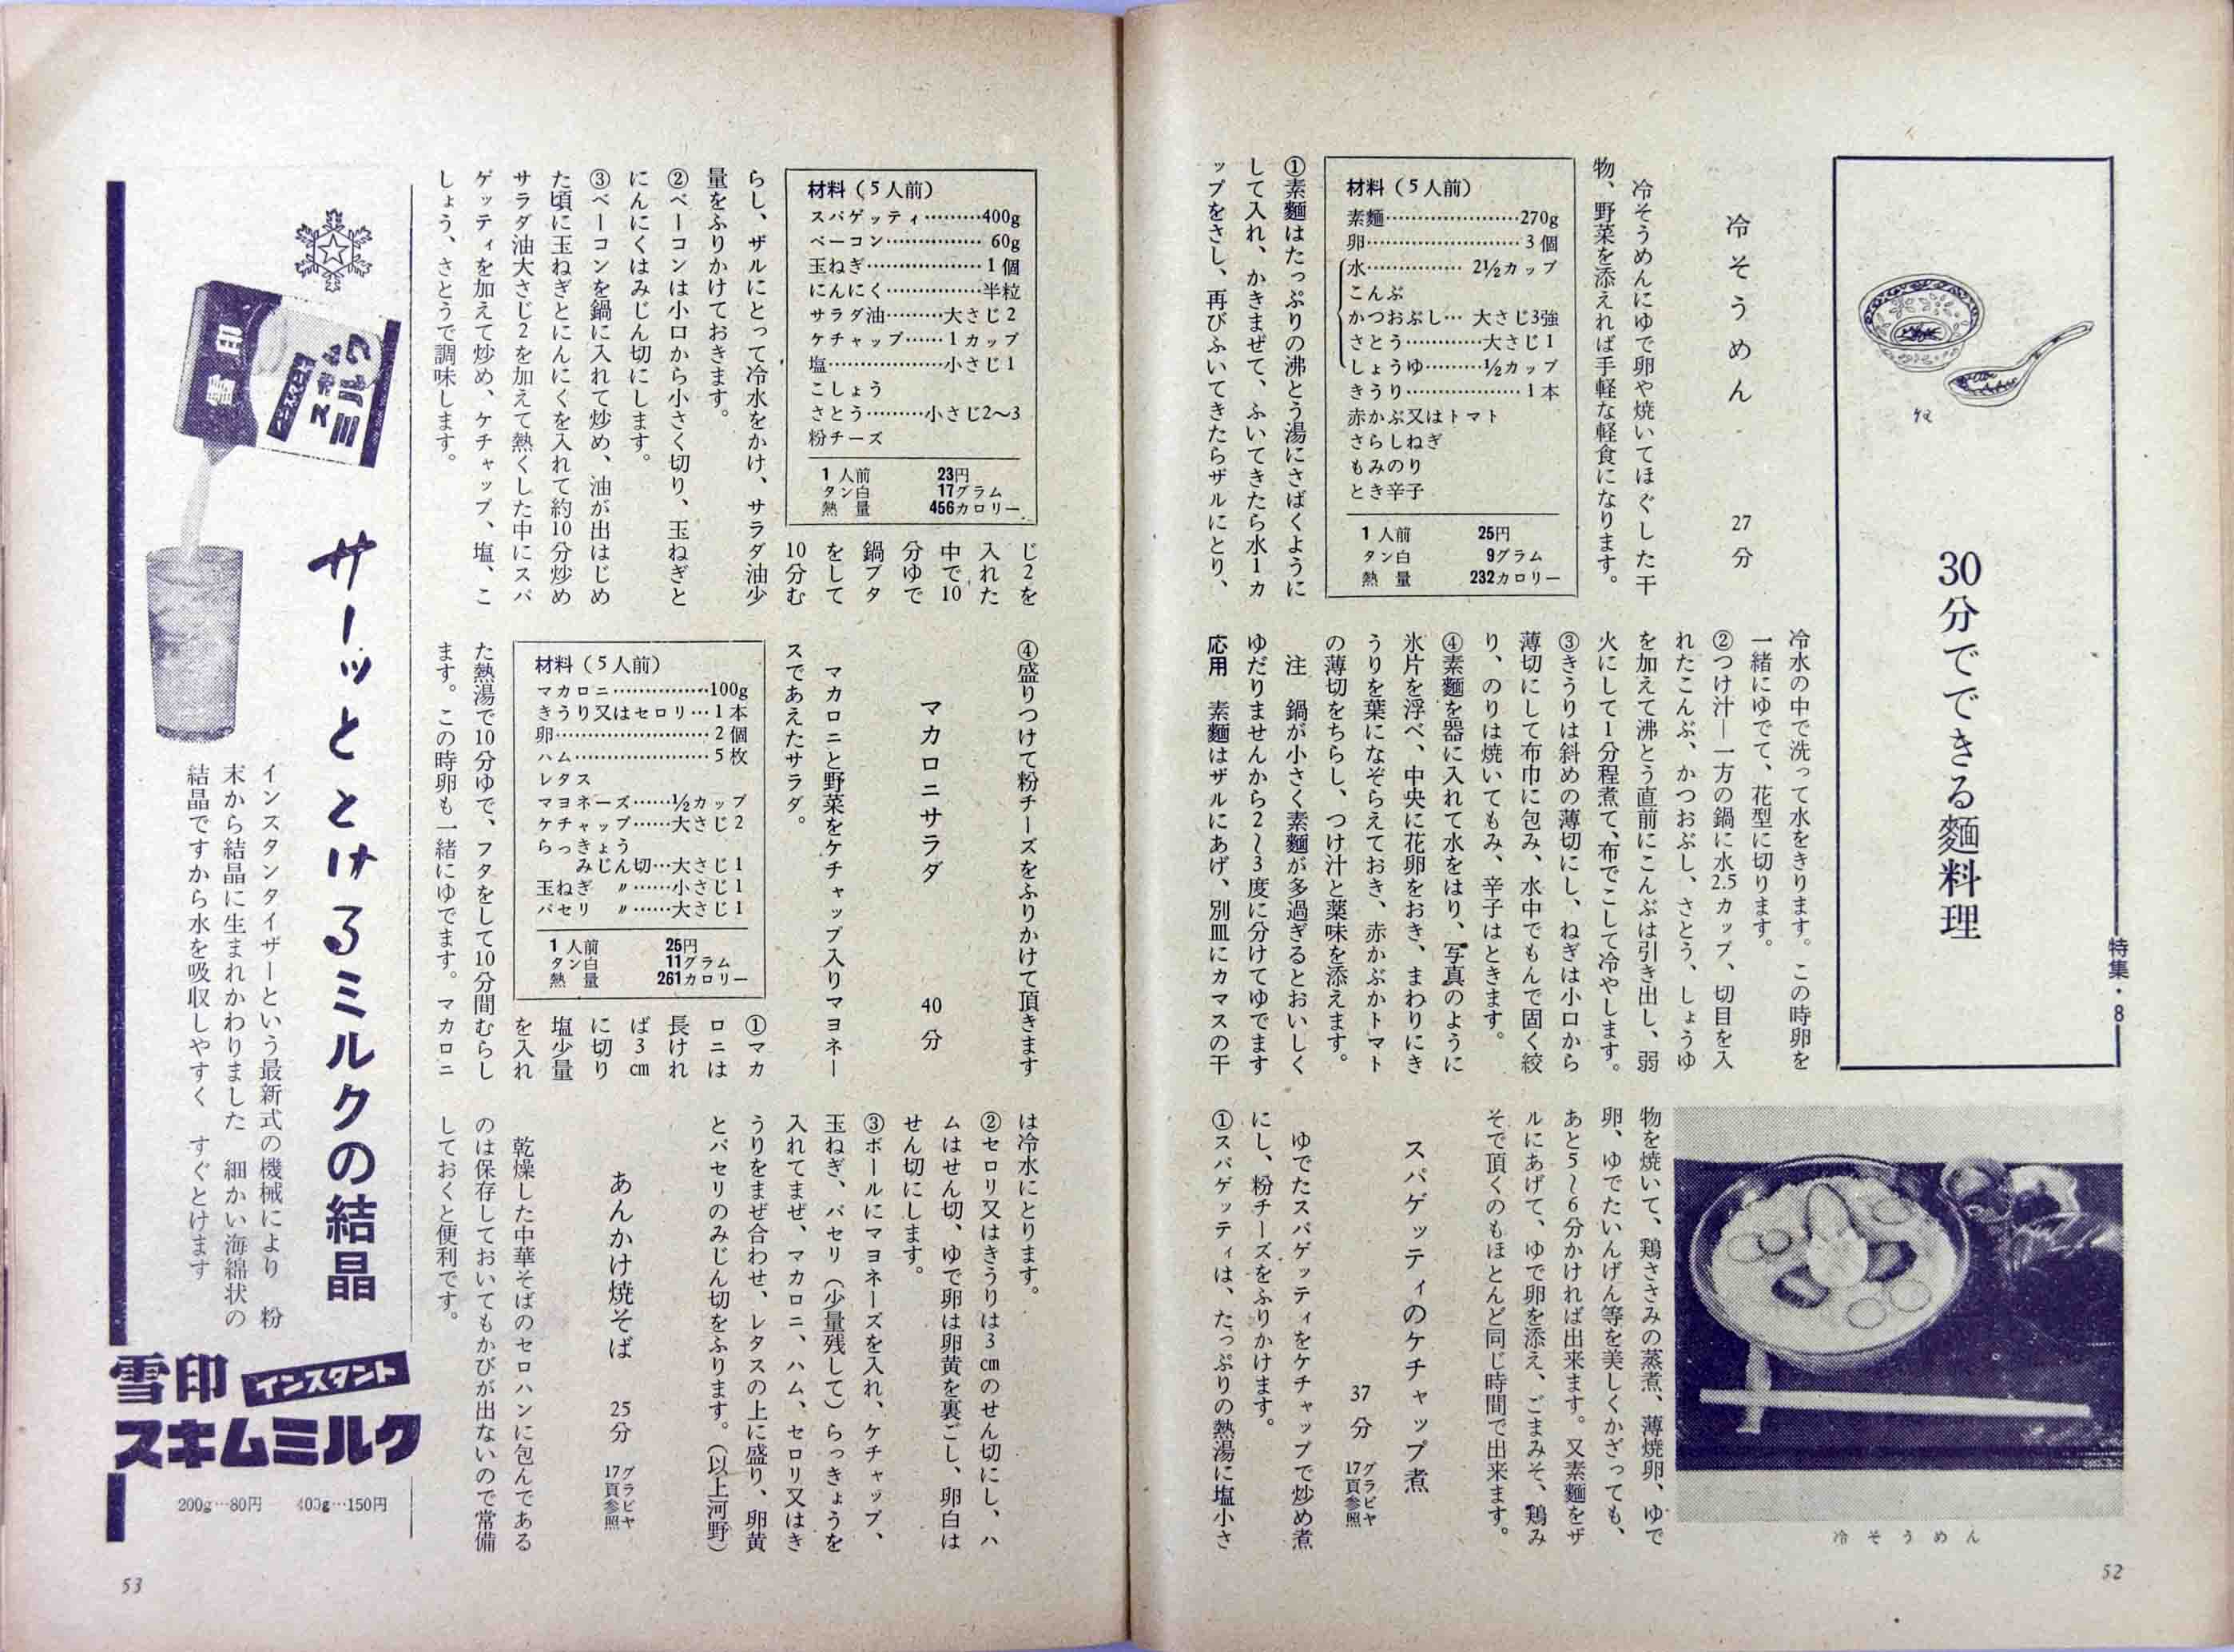 特集・8
30分でできる麵料理
冷そうめん
27分
冷そうめんにゆで卵や焼いてほぐした干
物、野菜を添えれば手軽な軽食になります。
材料(5人前)
素麵……………………270g
卵………………………3個
水……………2½カップ
こんぶ
かつおぶし…大さじ3強
さとう…………大さじ1
しょうゆ………½カップ
きうり………………1本
赤かぶ又はトマト
さらしねぎ
もみのり
とき辛子
1人前 25円
タン白 9グラム
熱量 232カロリー
①素麵はたっぷりの沸とう湯にさばくように
して入れ、かきまぜて、ふいてきたら水1カ
ップをさし、再びふいてきたらザルにとり、
冷水の中で洗って水をきります。この時卵を
一緒にゆでて、花型に切ります。
②つけ汁―一方の鍋に水2.5カップ、切目を入
れたこんぶ、かつおぶし、さとう、しょうゆ
を加えて沸とう直前にこんぶは引き出し、弱
火にして1分程煮て、布でこして冷やします。
③きうりは斜めの薄切にし、ねぎは小口から
薄切にして布巾に包み、水中でもんで固く絞
り、のりは焼いてもみ、辛子はときます。
④素麵を器に入れて水をはり、写真のように
氷片を浮べ、中央に花卵をおき、まわりにき
うりを葉になぞらえておき、赤かぶかトマト
の薄切をちらし、つけ汁と薬味を添えます。
注 鍋が小さく素麵が多過ぎるとおいしく
ゆだりませんから2〜3度に分けてゆでます
応用 素麵はザルにあげ、別皿にカマスの干
物を焼いて、鶏ささみの蒸煮、薄焼卵、ゆで
卵、ゆでたいんげん等を美しくかざっても、
あと5〜6分かければ出来ます。又素麵をザ
ルにあげて、ゆで卵を添え、ごまみそ、鶏み
そで頂くのもほとんど同じ時間で出来ます。
冷そうめん
スパゲッティのケチャップ煮
37分 グラビヤ
17頁参照
ゆでたスパゲッティをケチャップで炒め煮
にし、粉チーズをふりかけます。
①スパゲッティは、たっぷりの熱湯に塩小さ
52
材料(5人前)
スパゲッティ………400g
ベーコン……………60g
玉ねぎ………………1個
にんにく……………半粒
サラダ油………大さじ2
ケチャップ……1カップ
塩………………小さじ1
こしょう
さとう………小さじ2〜3
粉チーズ
1人前 23円
タン白 17グラム
熱量 456カロリー
じ2を
入れた
中で10
分ゆで
鍋ブタ
をして
10分む
らし、ザルにとって冷水をかけ、サラダ油少
量をふりかけておきます。
②ベーコンは小口から小さく切り、玉ねぎと
にんにくはみじん切にします。
③ベーコンを鍋に入れて炒め、油が出はじめ
た頃に玉ねぎとにんにくを入れて約10分炒め
サラダ油大さじ2を加えて熱くした中にスパ
ゲッティを加えて炒め、ケチャップ、塩、こ
しょう、さとうで調味します。
④盛りつけて粉チーズをふりかけて頂きます
マカロニサラダ
40分
マカロニと野菜をケチャップ入りマヨネー
スであえたサラダ。
材料(5人前)
マカロニ……………100g
きうり又はセロリ…1本
卵……………………2個
ハム…………………5枚
レタス
マヨネーズ……½カップ
ケチャップ……大さじ2
らっきょう
みじん切…大さじ1
玉ねぎ 〃……小さじ1
パセリ 〃……大さじ1
1人前 25円
タン白 11グラム
熱量 261カロリー
①マカ
ロニは
長けれ
ば3cm
に切り
塩少量
を入れ
た熱湯で10分ゆで、フタをして10分間むらし
ます。この時卵も一緒にゆでます。マカロニ
は冷水にとります。
②セロリ又はきうりは3cmのせん切にし、ハ
ムはせん切、ゆで卵は卵黄を裏ごし、卵白は
せん切にします。
③ボールにマヨネーズを入れ、ケチャップ、
玉ねぎ、パセリ(少量残して)らっきょうを
入れてまぜ、マカロニ、ハム、セロリ又はき
うりをまぜ合わせ、レタスの上に盛り、卵黄
とパセリのみじん切をふります。(以上河野)
あんかけ焼そば
25分 グラビヤ
17頁参照
乾燥した中華そばのセロハンに包んである
のは保存しておいてもかびが出ないので常備
しておくと便利です。
雪印
インスタント
スキムミルク
サーッととけるミルクの結晶
インスタンタイザーという最新式の機械により 粉
末から結晶に生まれかわりました 細かい海綿状の
結晶ですから水を吸収しやすく すぐとけます
雪印 インスタント
スキムミルク
200g…80円 400g…150円
53